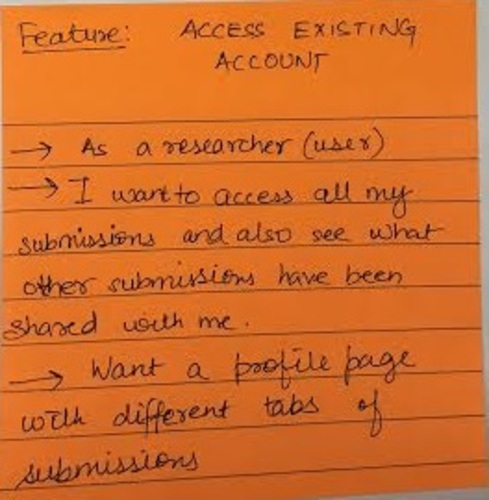 Feature: ACCESS EXISTING
ACCOUNT
→ As a researcher (user)
→ I want to access all my
submissions and also see what
other submissions have been
shared with me.
→ Want a profile page
with different tabs of
submissions